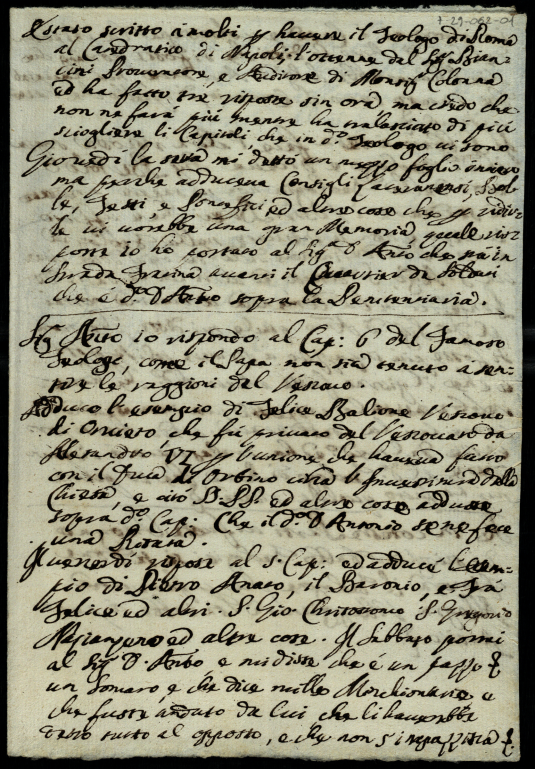 7-29-052-01
È stato scritto à molti p havere il Teologo di Roma
al Candratico di Napoli l'ottenne dal Sig. Bian-
cini Provenzore, e Auditore di Monsig. Colonna
ed ha fatto tre risposte sin ora ma credo che
non ne farà più mentre ha tralasciato di più
sciogliere li Capitoli, che in d.º Teologo vi sono
Giovedì la sera mi dettò un foglio intiero
ma perche adduceva Consigli Lateranensi, Bol-
le, Testi, e Pontefici ed altre cose che p
le vi vorebbe una gran Memoria quale ris-
poste io ho portato al Sig. D. Anto che sta in
strada avanti il de Soldati
che è d.º D. Anto sopra la Penitentiaria.
Sig. Anto io rispondo al Cap: 6 del Famoso
Teologo, come il Papa non sia tenuto à sen-
tire le raggioni del Vescovo.
Adduco l'esempio di Felice Balione Vescovo
di Orvieto, che fu privato del Vescovato da
Alesandro VI p l'unione che haveva fatto
con il Duca di Urbino circa l'Investitura della
Chiesa, e citò S. SS. ed altre cose addusse
sopra d.º Cap: Che il d.º D. Antonio se ne fece
una Risata.
Il venerdì rispose al 5. Cap: ed adduce l'esem-
pio di Pietro Anaro, il Baronio, e Frà
Felice ed altri. S. Gio Chrisostomo S. Gregorio
Nazianzeno ed altre cose. Il Sabbato portai
al Sig. D. Anto e mi disse che è un pazzo
un Somaro, e che dice mille Minchionarie e
che fusse andato da lui che li haverebbe
detto tutto al opposto, e che non s'inpazziscia